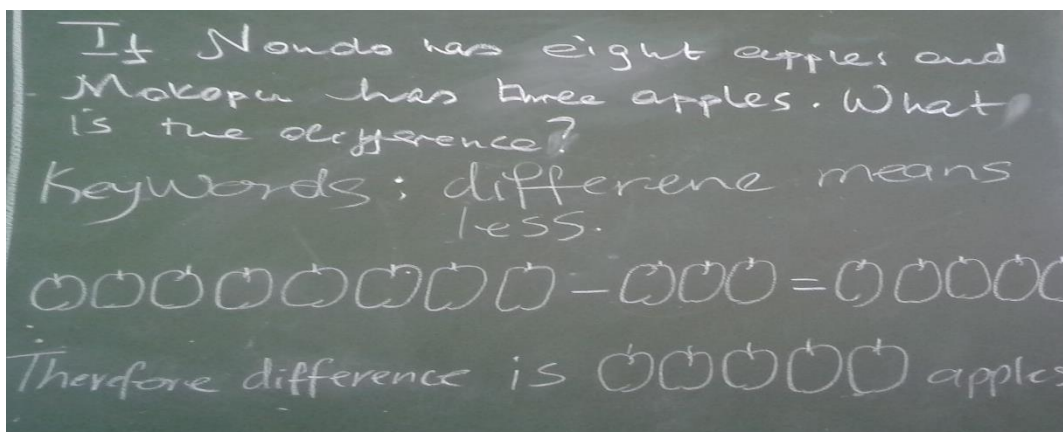 If Nondo has eight apples and
Mokopu has three apples. What
is the difference?
Keywords: differene means
less.
- =
Therefore difference is apples